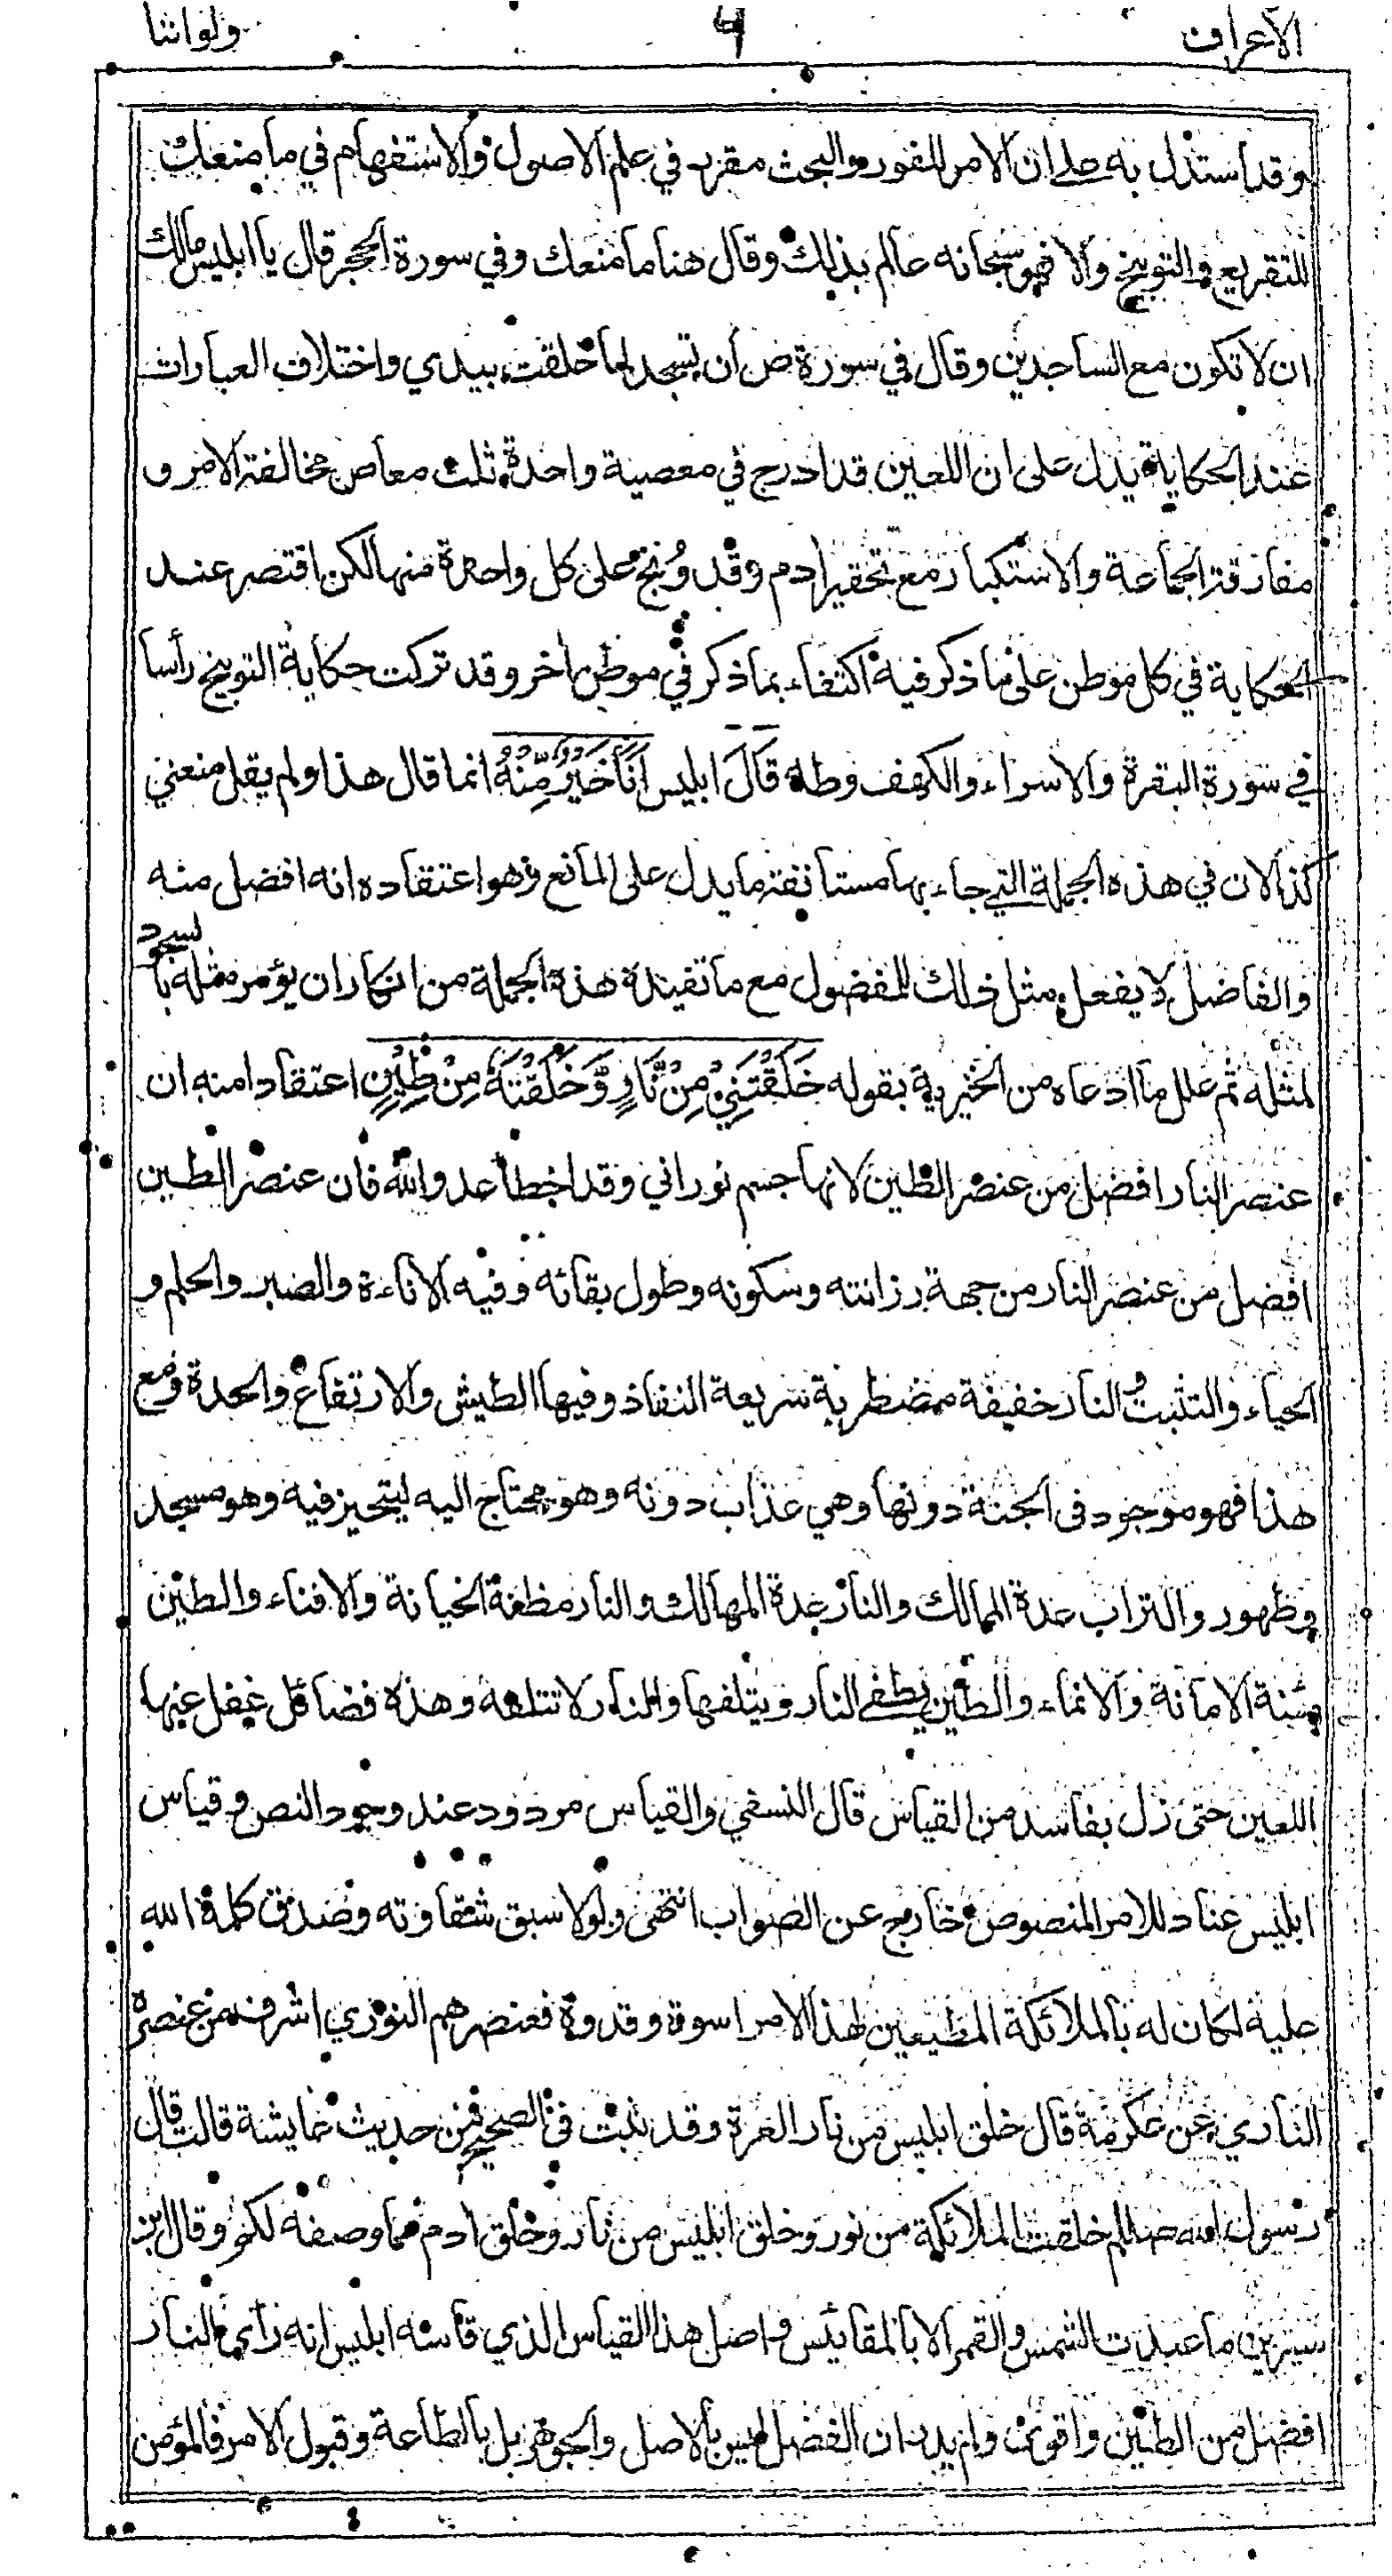 الاعراف ٦ ولواننا
وقد استدل به على ان الامر للفور والبحث مقرر في علم الاصول والاستفهام في ما منعك
للتقريع والتوبيخ والا فهو سبحانه عالم بذلك وقال هنا ما منعك وفي سورة الحجر قال يا ابليس مالك
ان لا تكون مع الساجدين وقال في سورة ص ان تسجد لما خلقت بيدي واختلاف العبارات
عند الحكاية يدل على ان اللعين قد ادرج في معصية واحدة ثلث معاص مخالفة الامر و
مفارقة الجماعة والاستكبار مع تحقير ادم وقد وُبخ على كل واحدة منها لكن اقتصر عند
الحكاية في كل موطن على ما ذكر فيه اكتفاء بما ذكر في موطن اخر وقد تركت حكاية التوبيخ رأسا
في سورة البقرة والاسراء والكهف وطه قَالَ ابليس اَنَا خَيْرٌ مِّنْهُ انما قال هذا ولم يقل منعني
كذا لان في هذه الجملة التي جاء بها مستانفة ما يدل على المانع وهو اعتقاده انه افضل منه
والفاضل لا يفعل مثل ذلك للمفضول مع ما تفيده هذه الجملة من انكار ان يؤمر مثله بالسجود
لمثله ثم علل ما ادعاه من الخيرية بقوله خَلَقْتَنِيْ مِنْ نَّارٍ وَّخَلَقْتَهٗ مِنْ طِيْنٍ اعتقادا منه ان
عنصر النار افضل من عنصر الطين لانها جسم نوراني وقد اخطأ عدو الله فان عنصر الطين
افضل من عنصر النار من جهة رزانته وسكونه وطول بقائه وفيه الاناءة والصبر والحلم و
الحياء والتثبت والنار خفيفة مضطربة سريعة النفاذ وفيها الطيش والارتفاع والحدة ومع
هذا فهو موجود في الجنة دونها وهي عذاب دونه وهو محتاج اليه ليتحيز فيه وهو مسجد
وطهور والتراب عدة الممالك والنار عدة المهالك والنار مظنة الخيانة والافناء والطين
مئنة الامانة والانماء والطين يطفئ النار ويتلفها والنار لا تتلفه وهذه فضائل غفل عنها
اللعين حتى زل بفاسد من القياس قال النسفي والقياس مردود عند وجود النص وقياس
ابليس عناد للامر المنصوص خارج عن الصواب انتهى ولولا سبق شقاوته وصدق كلمة الله
عليه لكان له بالملائكة المطيعين لهذا الامر اسوة وقدوة فعنصرهم النوري اشرف من عنصره
الناري عن عكرمة قال خلق ابليس من نار العزة وقد ثبت في الصحيح من حديث عايشة قالت قال
رسول الله صللم خلقت الملائكة من نور وخلق ابليس من نار وخلق ادم مما وصفه لكم وقال ابن
سيرين ما عبدت الشمس والقمر الا بالمقائيس واصل هذا القياس الذي قاسه ابليس انه راى النار
افضل من الطين واقوى ولم يدر ان الفضل ليس بالاصل والجوهر بل بالطاعة وقبول الامر فالمؤمن